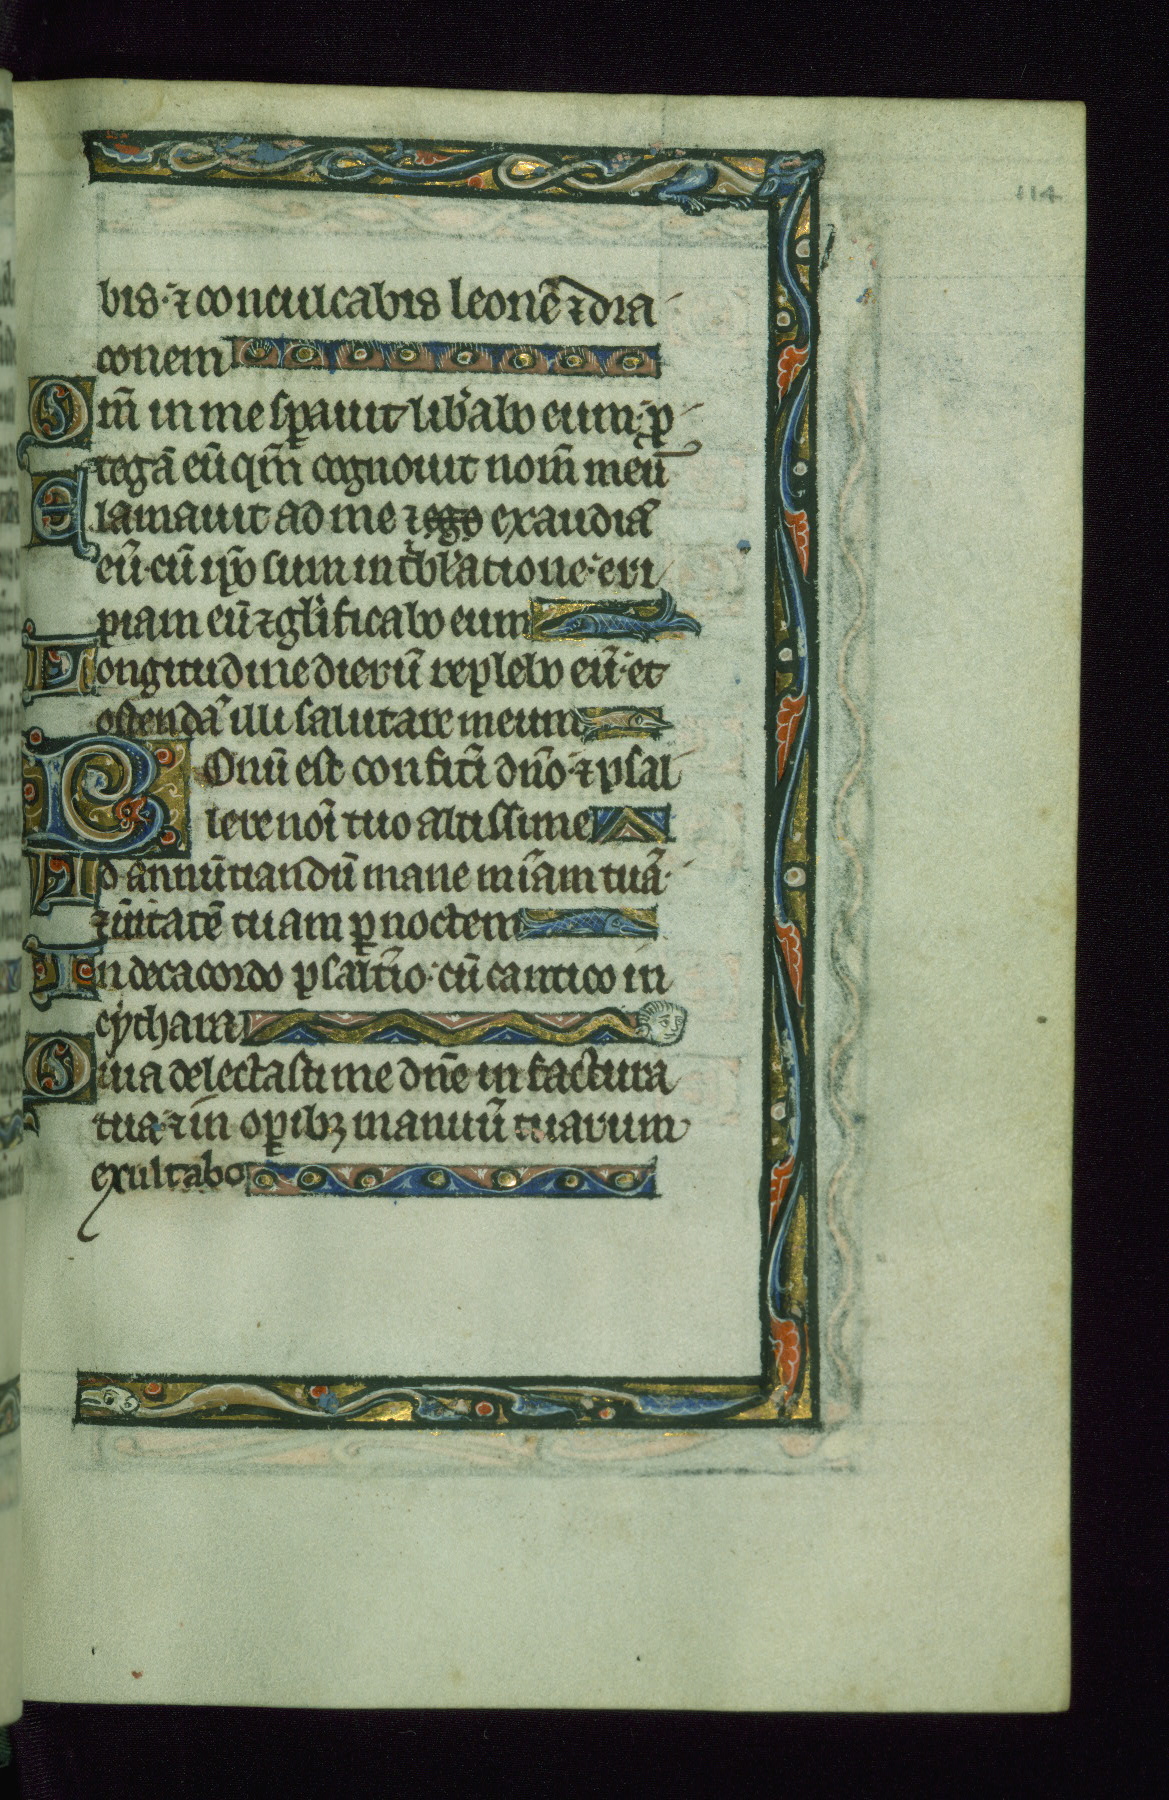 114
bis· ⁊ conculcabis leonē ⁊ dra
conem
Qm̄ in me sꝑauit lib̄abo eum· ꝓ
tegā eū qm̄ cognouit nom̄ meū
Clamauit ad me ⁊ ego exaudiā
eū· cū ip̄o sum in tͥbl̓atione· eri
piam eū ⁊ gl̓ificabo eum
Longitudine dierū replebo eū· et
ostendā illi salutare meum
Bonū est confit̓i dn̄o ⁊ psal
lere noī tuo altissime
Ad annūtiandū mane mīam tuā·
⁊ ūitatē tuam ꝑ noctem
In decacordo psalt̓io· cū cantico in
cythara
Quia delectasti me dn̄e in factura
tua ⁊ in oꝑibꝫ manuū tuarum
exultabo